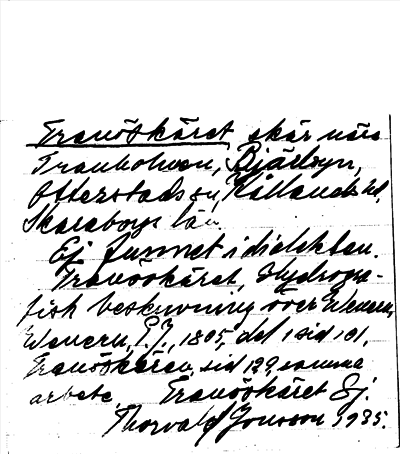 Tranöskäret, skär nära
Tranholmen, Bjärbyn,
Otterstads sn, Kållands hd,
Skaraborgs län.
Ej funnet i dialekten.
Tranöskäret, Hydrogra-
fisk beskrivning över Wenern,
Wenern, P. J., 1805, del 1 sid 101,
Tranöskären, sid 129, samma
arbete. Tranöskäret Ej.
Thorvald Jonsson 1935.